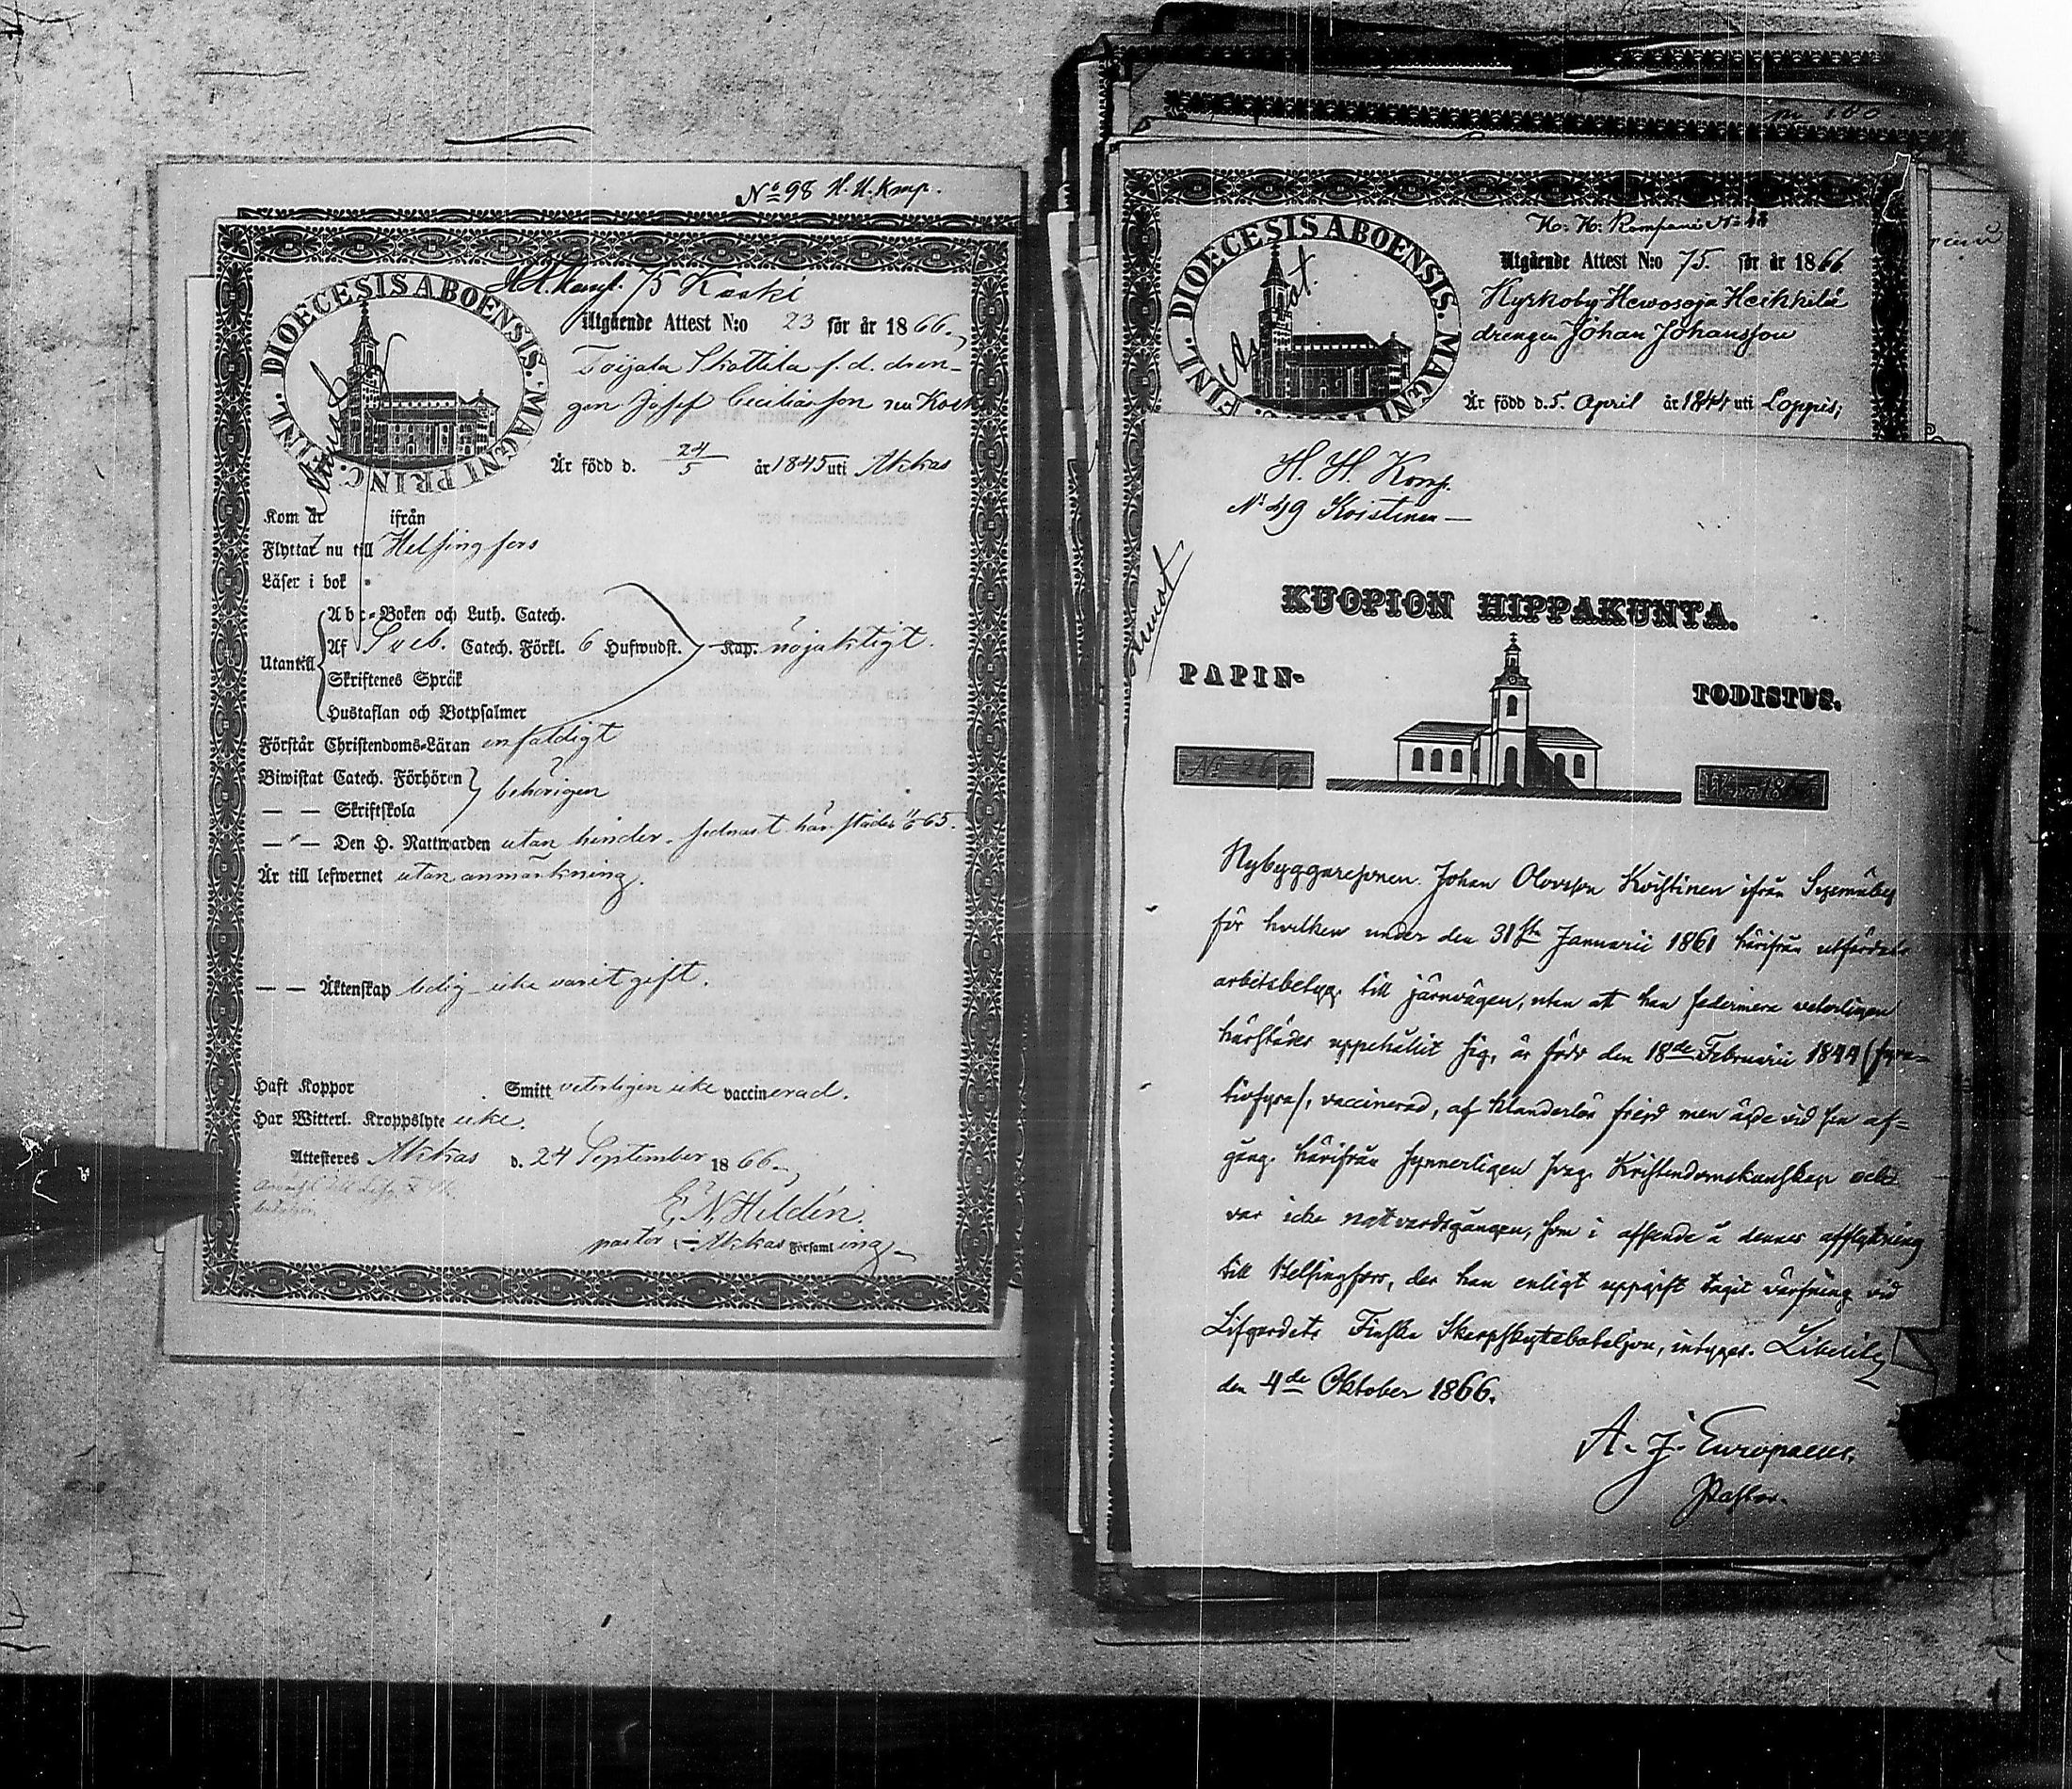 No 98 H. H. Komp.
H. H. Komp. 75 Koski
DIOECESIS ABOENSIS. MAGNI PRINC. FINL.
Utgående Attest N:o 23 för år 1866.
Toijala Skottila f. d. dren-
gen Josef Ceciliasson nu Koski
Är född d. 24/5 år 1845 uti Akkas
Kom år ifrån
Flyttat nu till Helsingfors
Läser i bok
Utantill
Abc-Boken och Luth. Catech.
Af Sveb. Catech. Förkl. 6 Hufwudst. Kap. nöjaktigt.
Skriftenes Språk
Hustaflan och Botpsalmer
Förstår Christendoms-Läran enfaldigt
Biwistat Catech. Förhören
behörigen
— — Skriftskola
— — Den H. Nattwarden utan hinder. sednast härstädes 65.
Är till lefwernet utan anmärkning.
— — Äktenskap ledig – icke varit gift.
Haft Koppor Smitt veterligen icke vaccinerad.
Har Witterl. Kroppslyte icke.
Attesteres Akkas d. 24 September 1866.
E. N. Hildén.
pastor i Akkas Församling
Utgående Attest N:o 75. för år 1866
Kyrkoby Hewosoja Heikkilä
drengen Johan Johansson
Är född d. 5. April år 1844 uti Loppis;
DIOECESIS ABOENSIS. MAGNI FINL.
H. H. Komp.
No 49 Koistinen —
KUOPION HIPPAKUNTA.
PAPIN- TODISTUS.
No 269.
Nybyggaresonen Johan Olovsson Koistinen ifrån
för hvilken under den 31sta Januarii 1861 härifrån utfärdats
arbetsbetyg till järnvägen, utan att han sedermera veterligen
härstädes uppehållit sig, är född den 18de Februarii 1844 (fyra-
tiofyra), vaccinerad, af klanderlös frejd men ägde vid sin af-
gång härifrån synnerligen svag Kristendomskunskap och
var icke nattvardsgången, som i afseende å dennes afflyttning
till Helsingfors, der han enligt uppgift tagit värfning vid
Lifgardets Finska Skarpskyttebataljon, intygas. Libelits
den 4de Oktober 1866.
A. J. Europaeus.
Pastor.